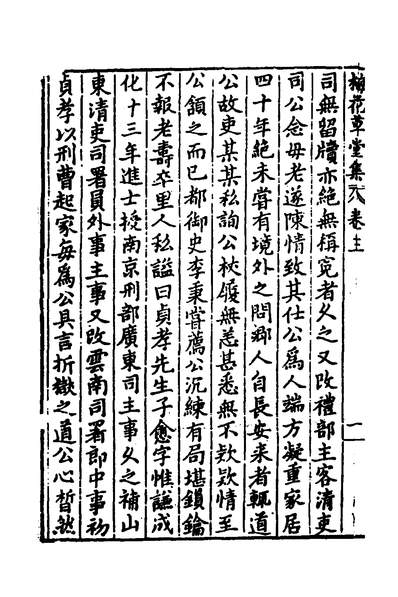 梅花草堂集 卷之
司無留牘亦絶無稱寃者久之又改禮部主客清吏
司公念母老遂陳情致其仕公爲人端方凝重家居
四十年絶未嘗有境外之問鄉人自長安来者輒道
公故吏某某私詢公枝履無恙甚悉無不欵欵情至
公頷之而已都御史李秉嘗薦公沉練有局堪鎖鑰
不報老壽卒里人私謚曰貞孝先生子愈字惟謙成
化十三年進士授南京刑部廣東司主事久之補山
東清吏司署員外事主事又改雲南司署郎中事初
貞孝以刑曹起家每爲公具言折獄之道公心皙然